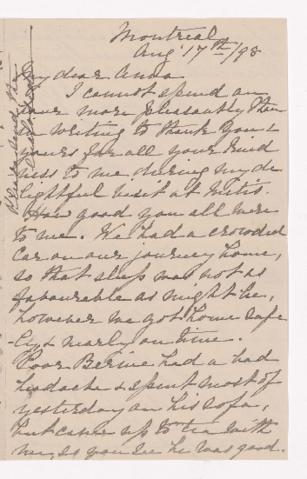 Montreal
Aug 17th/98
My dear Anna
I cannot spend an
hour more pleasantly than
in writing to thank you &
yours for all your kind
ness to me during my de
lightful visit at Metis.
How good you all were
to me. We had a crowded
car on our journey home,
so that sleep was not as
favourable as might be,
however we got home safe
-ly & nearly on time.
Poor Bernie had a bad
headache & spent most of
yesterday on his sofa,
but came up to tea with
me, so you see he was good.